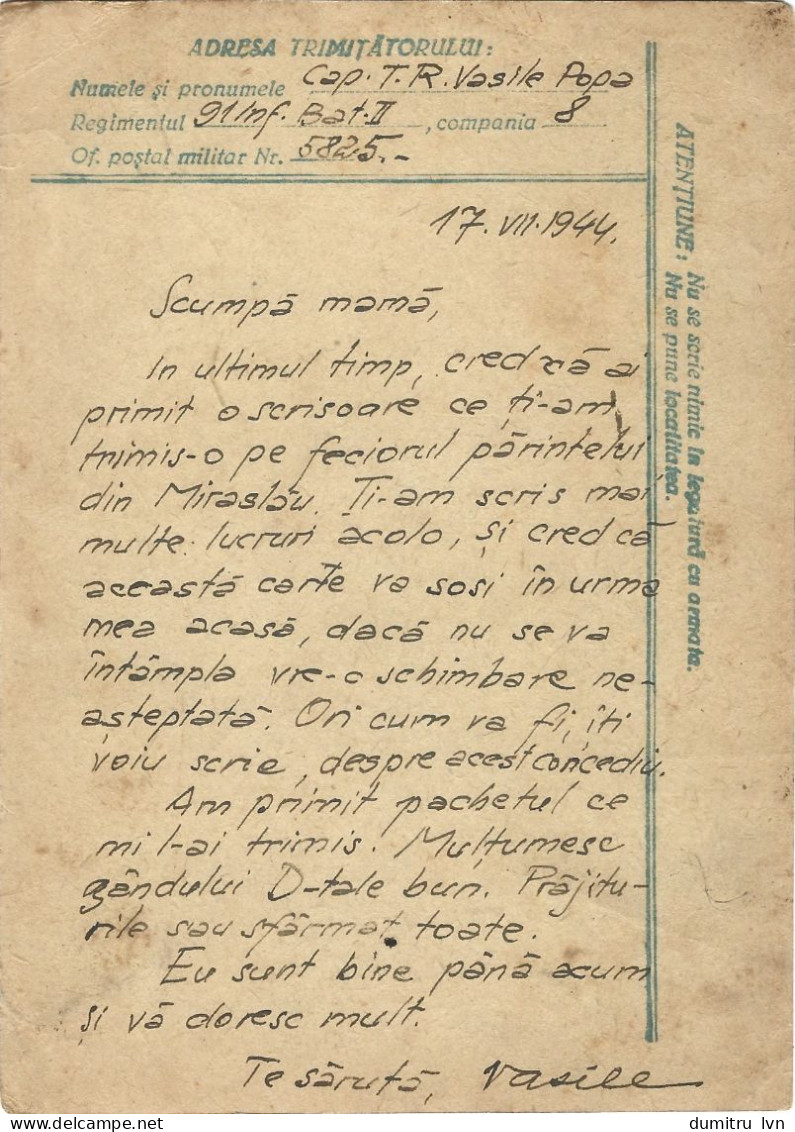 ADRESA TRIMIȚĂTORULUI:
Numele și pronumele Cap. T. R. Vasile Popa
Regimentul 91 Inf. Bat. II, compania 8
Of. poștal militar Nr. 5825.-
17. VII. 1944.
Scumpă mamă,
In ultimul timp, cred că ai
primit o scrisoare ce ți-am
trimis-o pe feciorul părintelui
din Miraslău. Ți-am scris mai
multe lucruri acolo, și cred că
această carte va sosi în urma
mea acasă, dacă nu se va
întâmpla vre-o schimbare ne-
așteptată. Ori cum va fi, îți
voiu scrie, despre acest concediu.
Am primit pachetul ce
mi l-ai trimis. Mulțumesc
gândului D-tale bun. Prăjitu-
rile sau sfărmat toate.
Eu sunt bine până acum
și vă doresc mult.
Te sărută, Vasile
ATENȚIUNE: Nu se scrie nimic în legătură cu armata.
Nu se pune localitatea.
dumitru lvn